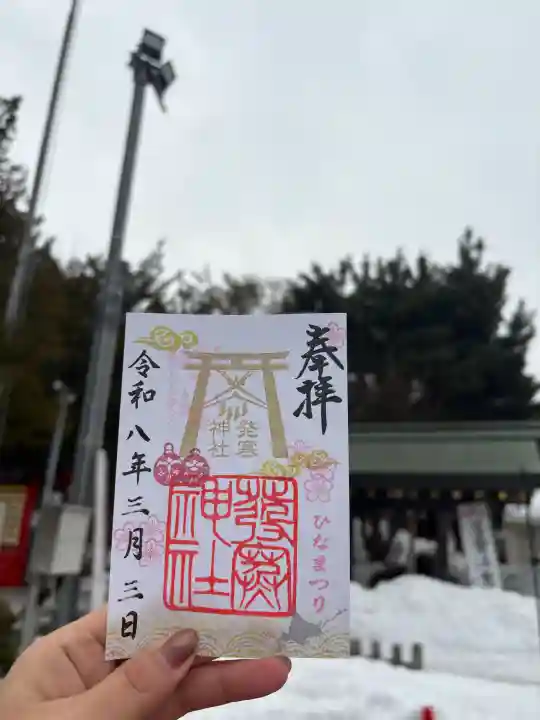 奉拝
発寒
神社
発寒
神社
ひなまつり
令和八年三月三日